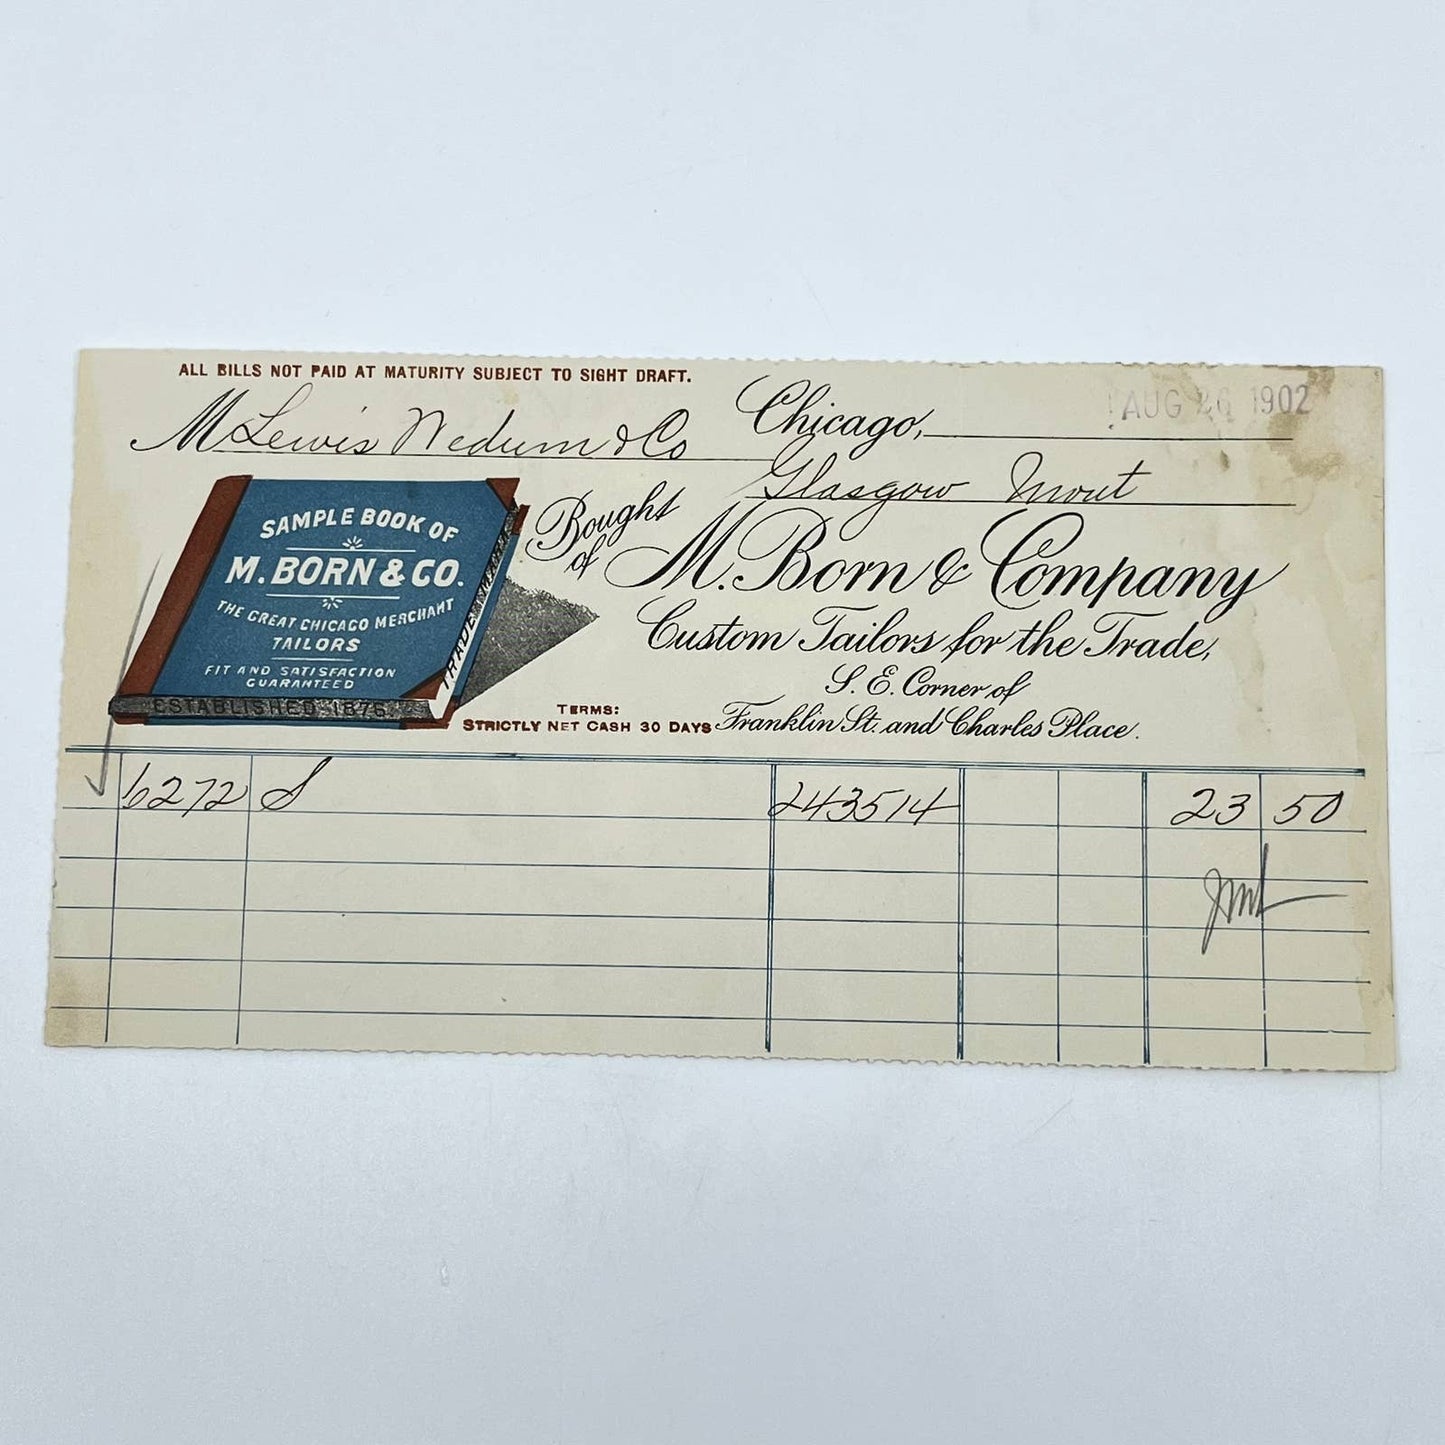 ALL BILLS NOT PAID AT MATURITY SUBJECT TO SIGHT DRAFT.
Chicago, AUG 26 1902
M Lewis Wedum & Co
Glasgow Mont
SAMPLE BOOK OF
M. BORN & CO.
THE GREAT CHICAGO MERCHANT
TAILORS
FIT AND SATISFACTION
GUARANTEED
ESTABLISHED 1876
TRADE MARK
Bought of M. Born & Company
Custom Tailors for the Trade,
S. E. Corner of
Franklin St. and Charles Place.
TERMS:
STRICTLY NET CASH 30 DAYS
6272 S 243514 23 50